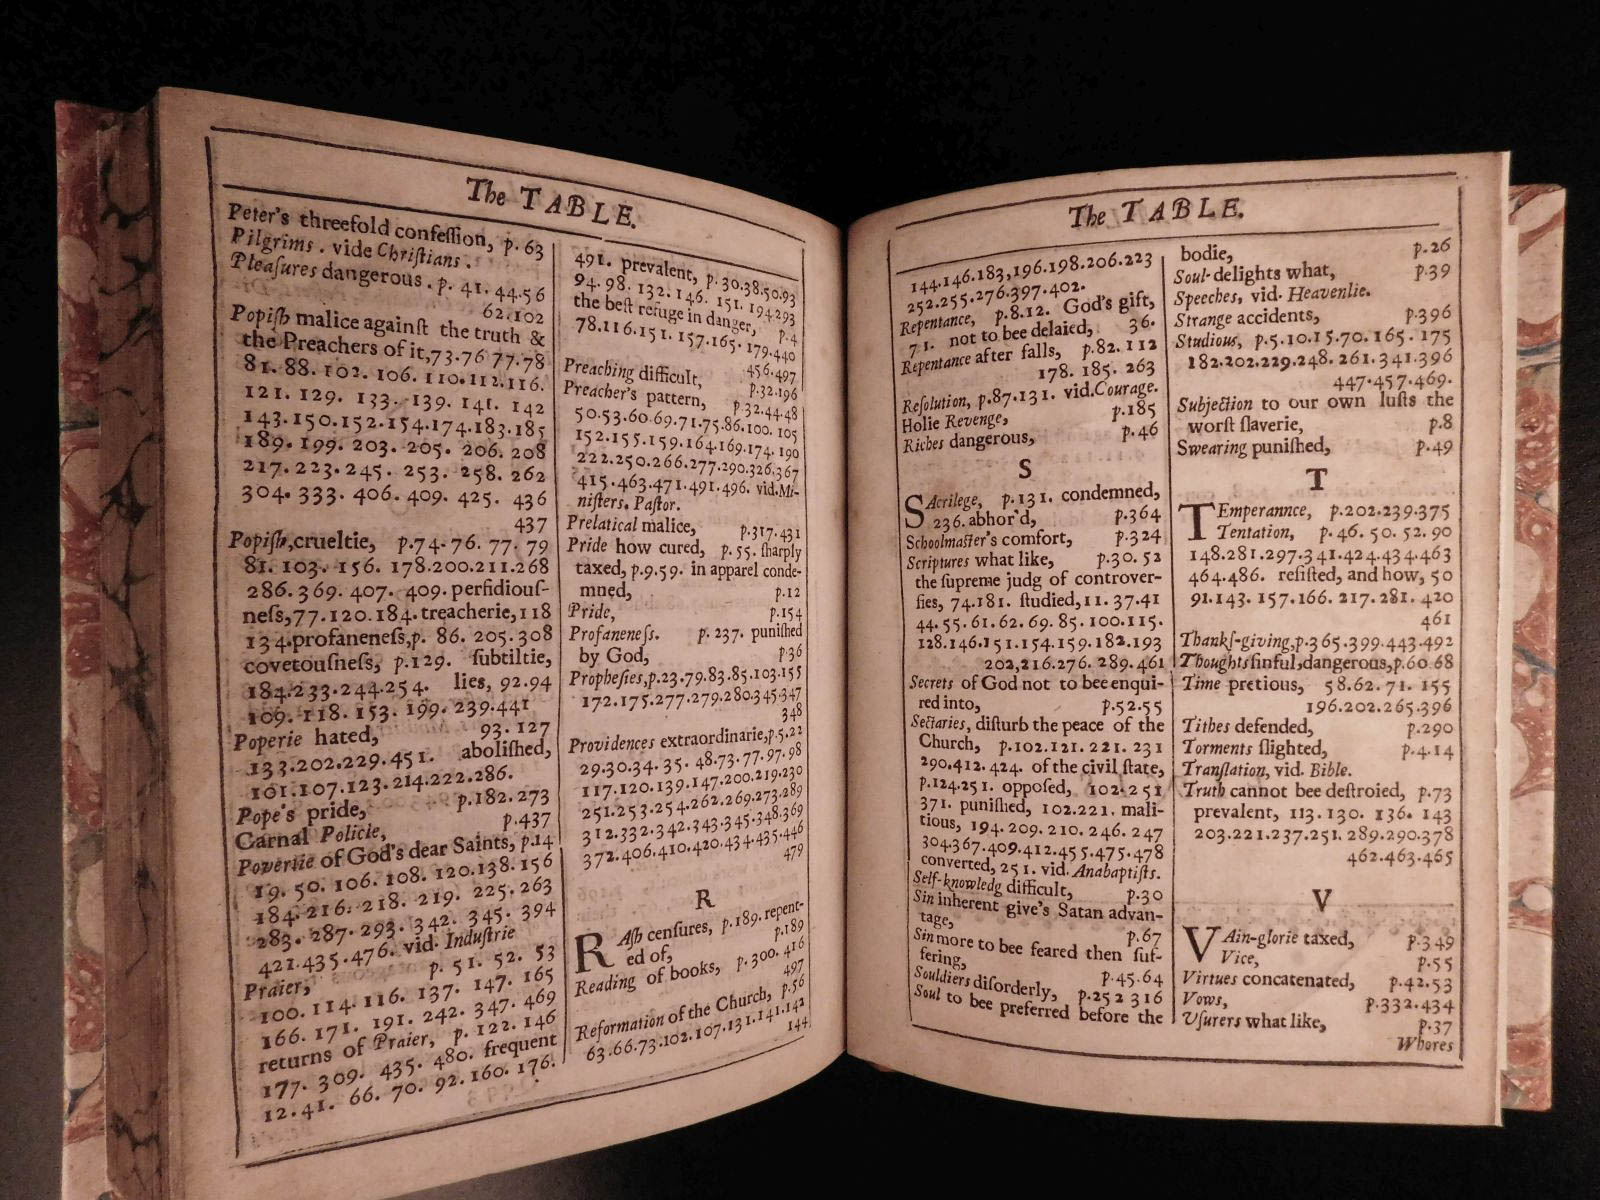 The TABLE.
Peter's threefold confeſſion, p. 63
Pilgrims. vide Chriſtians.
Pleaſures dangerous. p. 41. 44. 56
62. 102
Popiſh malice againſt the truth &
the Preachers of it, 73. 76 77. 78
81. 88. 102. 106. 110. 112. 116.
121. 129. 133. 139. 141. 142
143. 150. 152. 154. 174. 183. 185
189. 199. 203. 205. 206. 208
217. 223. 245. 253. 258. 262
304. 333. 406. 409. 425. 436
437
Popiſh, crueltie, p. 74. 76. 77. 79
81. 103. 156. 178. 200. 211. 268
286. 369. 407. 409. perfidiouſ-
neſs, 77. 120. 184. treacherie, 118
134. profaneneſs, p. 86. 205. 308
covetouſneſs, p. 129. ſubtiltie,
184. 233. 244. 254. lies, 92. 94
109. 118. 153. 199. 239. 441
Poperie hated, 93. 127
133. 202. 229. 451. aboliſhed,
101. 107. 123. 214. 222. 286.
Pope's pride, p. 182. 273
Carnal Policie, p. 437
Povertie of God's dear Saints, p. 14
19. 50. 106. 108. 120. 138. 156
184. 216. 218. 219. 225. 263
283. 287. 293. 342. 345. 394
421. 435. 476. vid. Induſtrie
Praier, p. 51. 52. 53
100. 114. 116. 137. 147. 165
166. 171. 191. 242. 347. 469
returns of Praier, p. 122. 146
177. 309. 435. 480. frequent
12. 41. 66. 70. 92. 160. 176.
491. prevalent, p. 30. 38. 50. 93
94. 98. 132. 146. 151. 194. 293
the beſt refuge in danger, p. 4
78. 116. 151. 157. 165. 179. 440
456. 497
Preaching difficult, p. 32. 196
Preacher's pattern, p. 32. 44. 48
50. 53. 60. 69. 71. 75. 86. 100. 105
152. 155. 159. 164. 169. 174. 190
222. 250. 266. 277. 290. 326. 367
415. 463. 471. 491. 496. vid. Mi-
niſters. Paſtor.
Prelatical malice, p. 317. 431
Pride how cured, p. 55. ſharply
taxed, p. 9. 59. in apparel conde-
mned, p. 12
Pride, p. 154
Profaneneſs. p. 237. puniſhed
by God, p. 36
Propheſies, p. 23. 79. 83. 85. 103. 155
172. 175. 277. 279. 280. 345. 347
348
Providences extraordinarie, p. 5. 22
29. 30. 34. 35. 48. 73. 77. 97. 98
117. 120. 139. 147. 200. 219. 230
251. 253. 254. 262. 269. 273. 289
312. 332. 342. 343. 345. 348. 369
372. 406. 410. 420. 434. 435. 446
479
R
RAſh cenſures, p. 189. repent-
ed of, p. 189
Reading of books, p. 300. 416
497
Reformation of the Church, p. 56
63. 66. 73. 102. 107. 131. 141. 142
144.
The TABLE.
144. 146. 183, 196. 198. 206. 223
252. 255. 276. 397. 402.
Repentance, p. 8. 12. God's gift,
71. not to bee delaied, 36.
Repentance after falls, p. 82. 112
178. 185. 263
Reſolution, p. 87. 131. vid. Courage.
Holie Revenge, p. 185
Riches dangerous, p. 46
S
SAcrilege, p. 131. condemned,
236. abhor'd, p. 364
Schoolmaſter's comfort, p. 324
Scriptures what like, p. 30. 52
the ſupreme judg of controver-
ſies, 74. 181. ſtudied, 11. 37. 41
44. 55. 61. 62. 69. 85. 100. 115.
128. 146. 151. 154. 159. 182. 193
202, 216. 276. 289. 461
Secrets of God not to bee enqui-
red into, p. 52. 55
Sectaries, diſturb the peace of the
Church, p. 102. 121. 221. 231
290. 412. 424. of the civil ſtate,
p. 124. 251. oppoſed, 102. 251
371. puniſhed, 102. 221. mali-
tious, 194. 209. 210. 246. 247
304. 367. 409. 412. 455. 475. 478
converted, 251. vid. Anabaptiſts.
Self-knowledg difficult, p. 30
Sin inherent give's Satan advan-
tage, p. 67
Sin more to bee feared then ſuf-
fering, p. 45. 64
Souldiers diſorderly, p. 252 316
Soul to bee preferred before the
bodie, p. 26
Soul-delights what, p. 39
Speeches, vid. Heavenlie.
Strange accidents, p. 396
Studious, p. 5. 10. 15. 70. 165. 175
182. 202. 229. 248. 261. 341. 396
447. 457. 469.
Subjection to our own luſts the
worſt ſlaverie, p. 8
Swearing puniſhed, p. 49
T
TEmperannce, p. 202. 239. 375
Tentation, p. 46. 50. 52. 90
148. 281. 297. 341. 424. 434. 463
464. 486. reſiſted, and how, 50
91. 143. 157. 166. 217. 281. 420
461
Thankſ-giving, p. 365. 399. 443. 492
Thoughts ſinful, dangerous, p. 60. 68
Time pretious, 58. 62. 71. 155
196. 202. 265. 396
Tithes defended, p. 290
Torments ſlighted, p. 4. 14
Tranſlation, vid. Bible.
Truth cannot bee deſtroied, p. 73
prevalent, 113. 130. 136. 143
203. 221. 237. 251. 289. 290. 378
462. 463. 465
V
VAin-glorie taxed, p. 349
Vice, p. 55
Virtues concatenated, p. 42. 53
Vows, p. 332. 434
Uſurers what like, p. 37
Whores